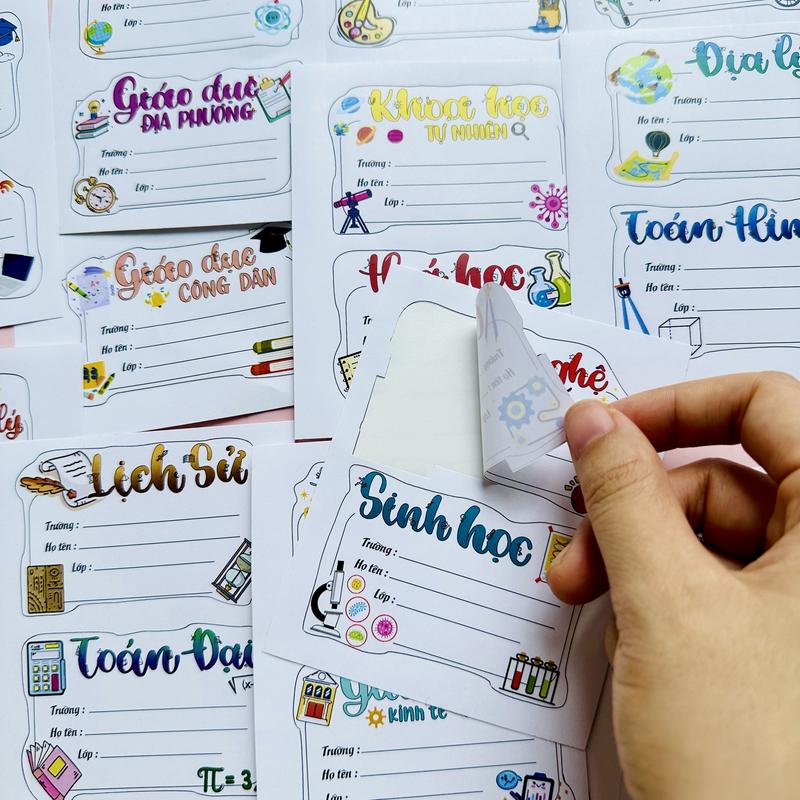 Họ tên :
Lớp :
Giáo dục
ĐỊA PHƯƠNG
Trường :
Họ tên :
Lớp :
Khoa học
TỰ NHIÊN
Trường :
Họ tên :
Lớp :
Địa lý
Trường :
Họ tên :
Lớp :
Giáo dục
CÔNG DÂN
Trường :
Họ tên :
Lớp :
Hoá học
Toán Hìn
Trường :
Họ tên :
Lớp :
nghệ
Lịch Sử
Trường :
Họ tên :
Lớp :
Sinh học
Trường :
Họ tên :
Lớp :
Toán Đại
Trường :
Họ tên :
Lớp :
√(x-
π = 3,
Kinh tế
Trường :
Họ tên :
Lớp :